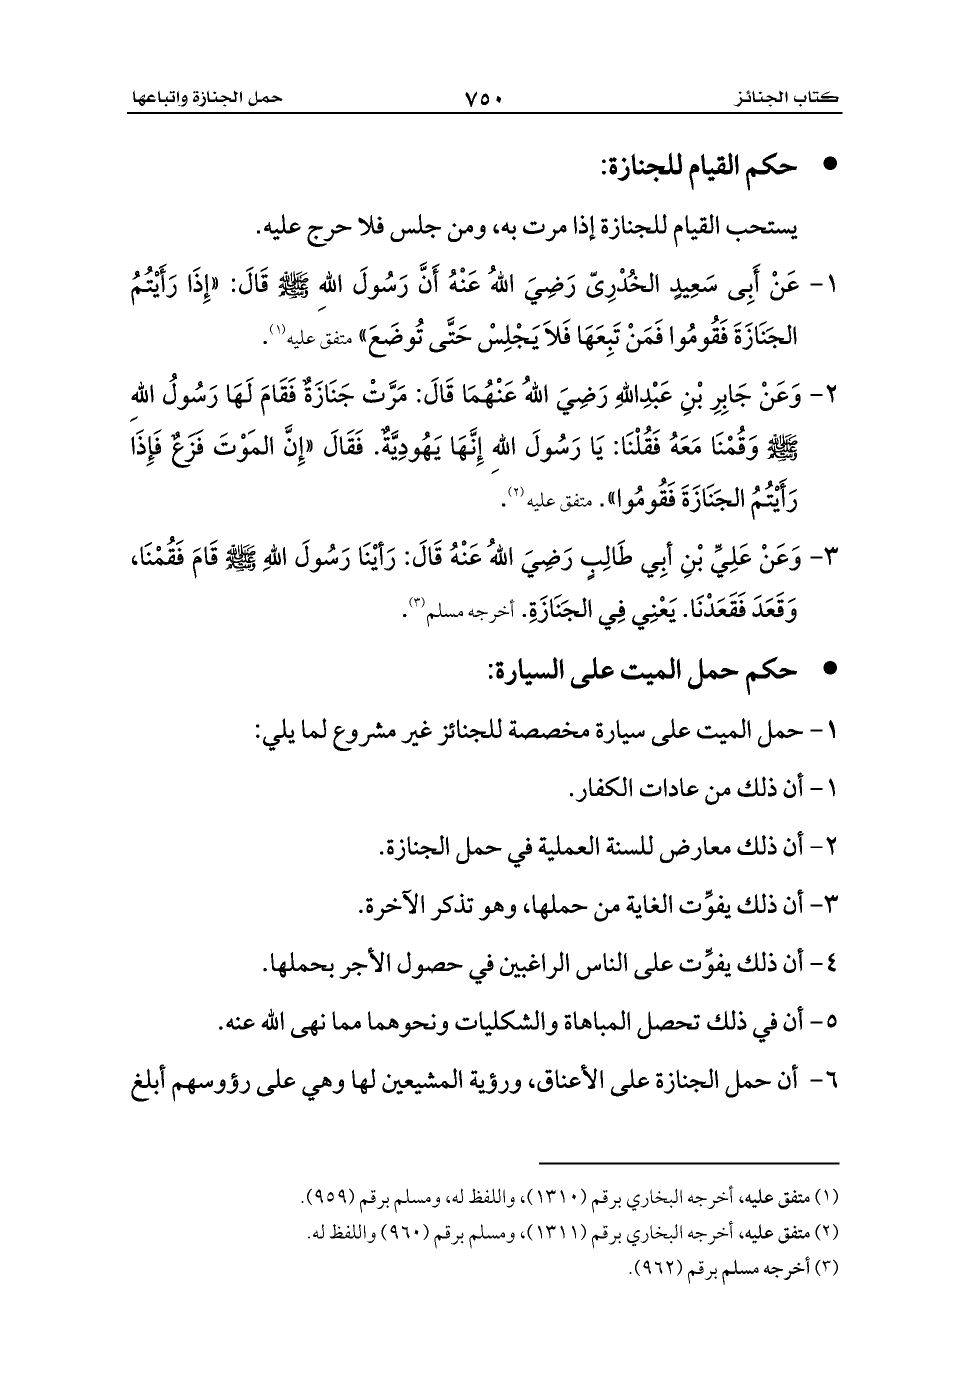 كتاب الجنائز ٧٥٠ حمل الجنازة واتباعها
• حكم القيام للجنازة:
يستحب القيام للجنازة إذا مرت به، ومن جلس فلا حرج عليه.
١- عَنْ أَبِى سَعِيدٍ الخُدْرِىّ رَضِيَ اللهُ عَنْهُ أَنَّ رَسُولَ اللهِ ﷺ قَالَ: «إِذَا رَأَيْتُمُ
الجَنَازَةَ فَقُومُوا فَمَنْ تَبِعَهَا فَلاَ يَجْلِسْ حَتَّى تُوضَعَ» متفق عليه(١).
٢- وَعَنْ جَابِرِ بْنِ عَبْدِاللهِ رَضِيَ اللهُ عَنْهُمَا قَالَ: مَرَّتْ جَنَازَةٌ فَقَامَ لَهَا رَسُولُ اللهِ
ﷺ وَقُمْنَا مَعَهُ فَقُلْنَا: يَا رَسُولَ اللهِ إِنَّهَا يَهُودِيَّةٌ. فَقَالَ «إِنَّ المَوْتَ فَزَعٌ فَإِذَا
رَأَيْتُمُ الجَنَازَةَ فَقُومُوا». متفق عليه(٢).
٣- وَعَنْ عَلِيِّ بْنِ أَبِي طَالِبٍ رَضِيَ اللهُ عَنْهُ قَالَ: رَأَيْنَا رَسُولَ اللهِ ﷺ قَامَ فَقُمْنَا،
وَقَعَدَ فَقَعَدْنَا. يَعْنِي فِي الجَنَازَةِ. أخرجه مسلم(٣).
• حكم حمل الميت على السيارة:
١- حمل الميت على سيارة مخصصة للجنائز غير مشروع لما يلي:
١- أن ذلك من عادات الكفار.
٢- أن ذلك معارض للسنة العملية في حمل الجنازة.
٣- أن ذلك يفوِّت الغاية من حملها، وهو تذكر الآخرة.
٤- أن ذلك يفوِّت على الناس الراغبين في حصول الأجر بحملها.
٥- أن في ذلك تحصل المباهاة والشكليات ونحوهما مما نهى الله عنه.
٦- أن حمل الجنازة على الأعناق، ورؤية المشيعين لها وهي على رؤوسهم أبلغ
(١) متفق عليه، أخرجه البخاري برقم (١٣١٠)، واللفظ له، ومسلم برقم (٩٥٩).
(٢) متفق عليه، أخرجه البخاري برقم (١٣١١)، ومسلم برقم (٩٦٠) واللفظ له.
(٣) أخرجه مسلم برقم (٩٦٢).